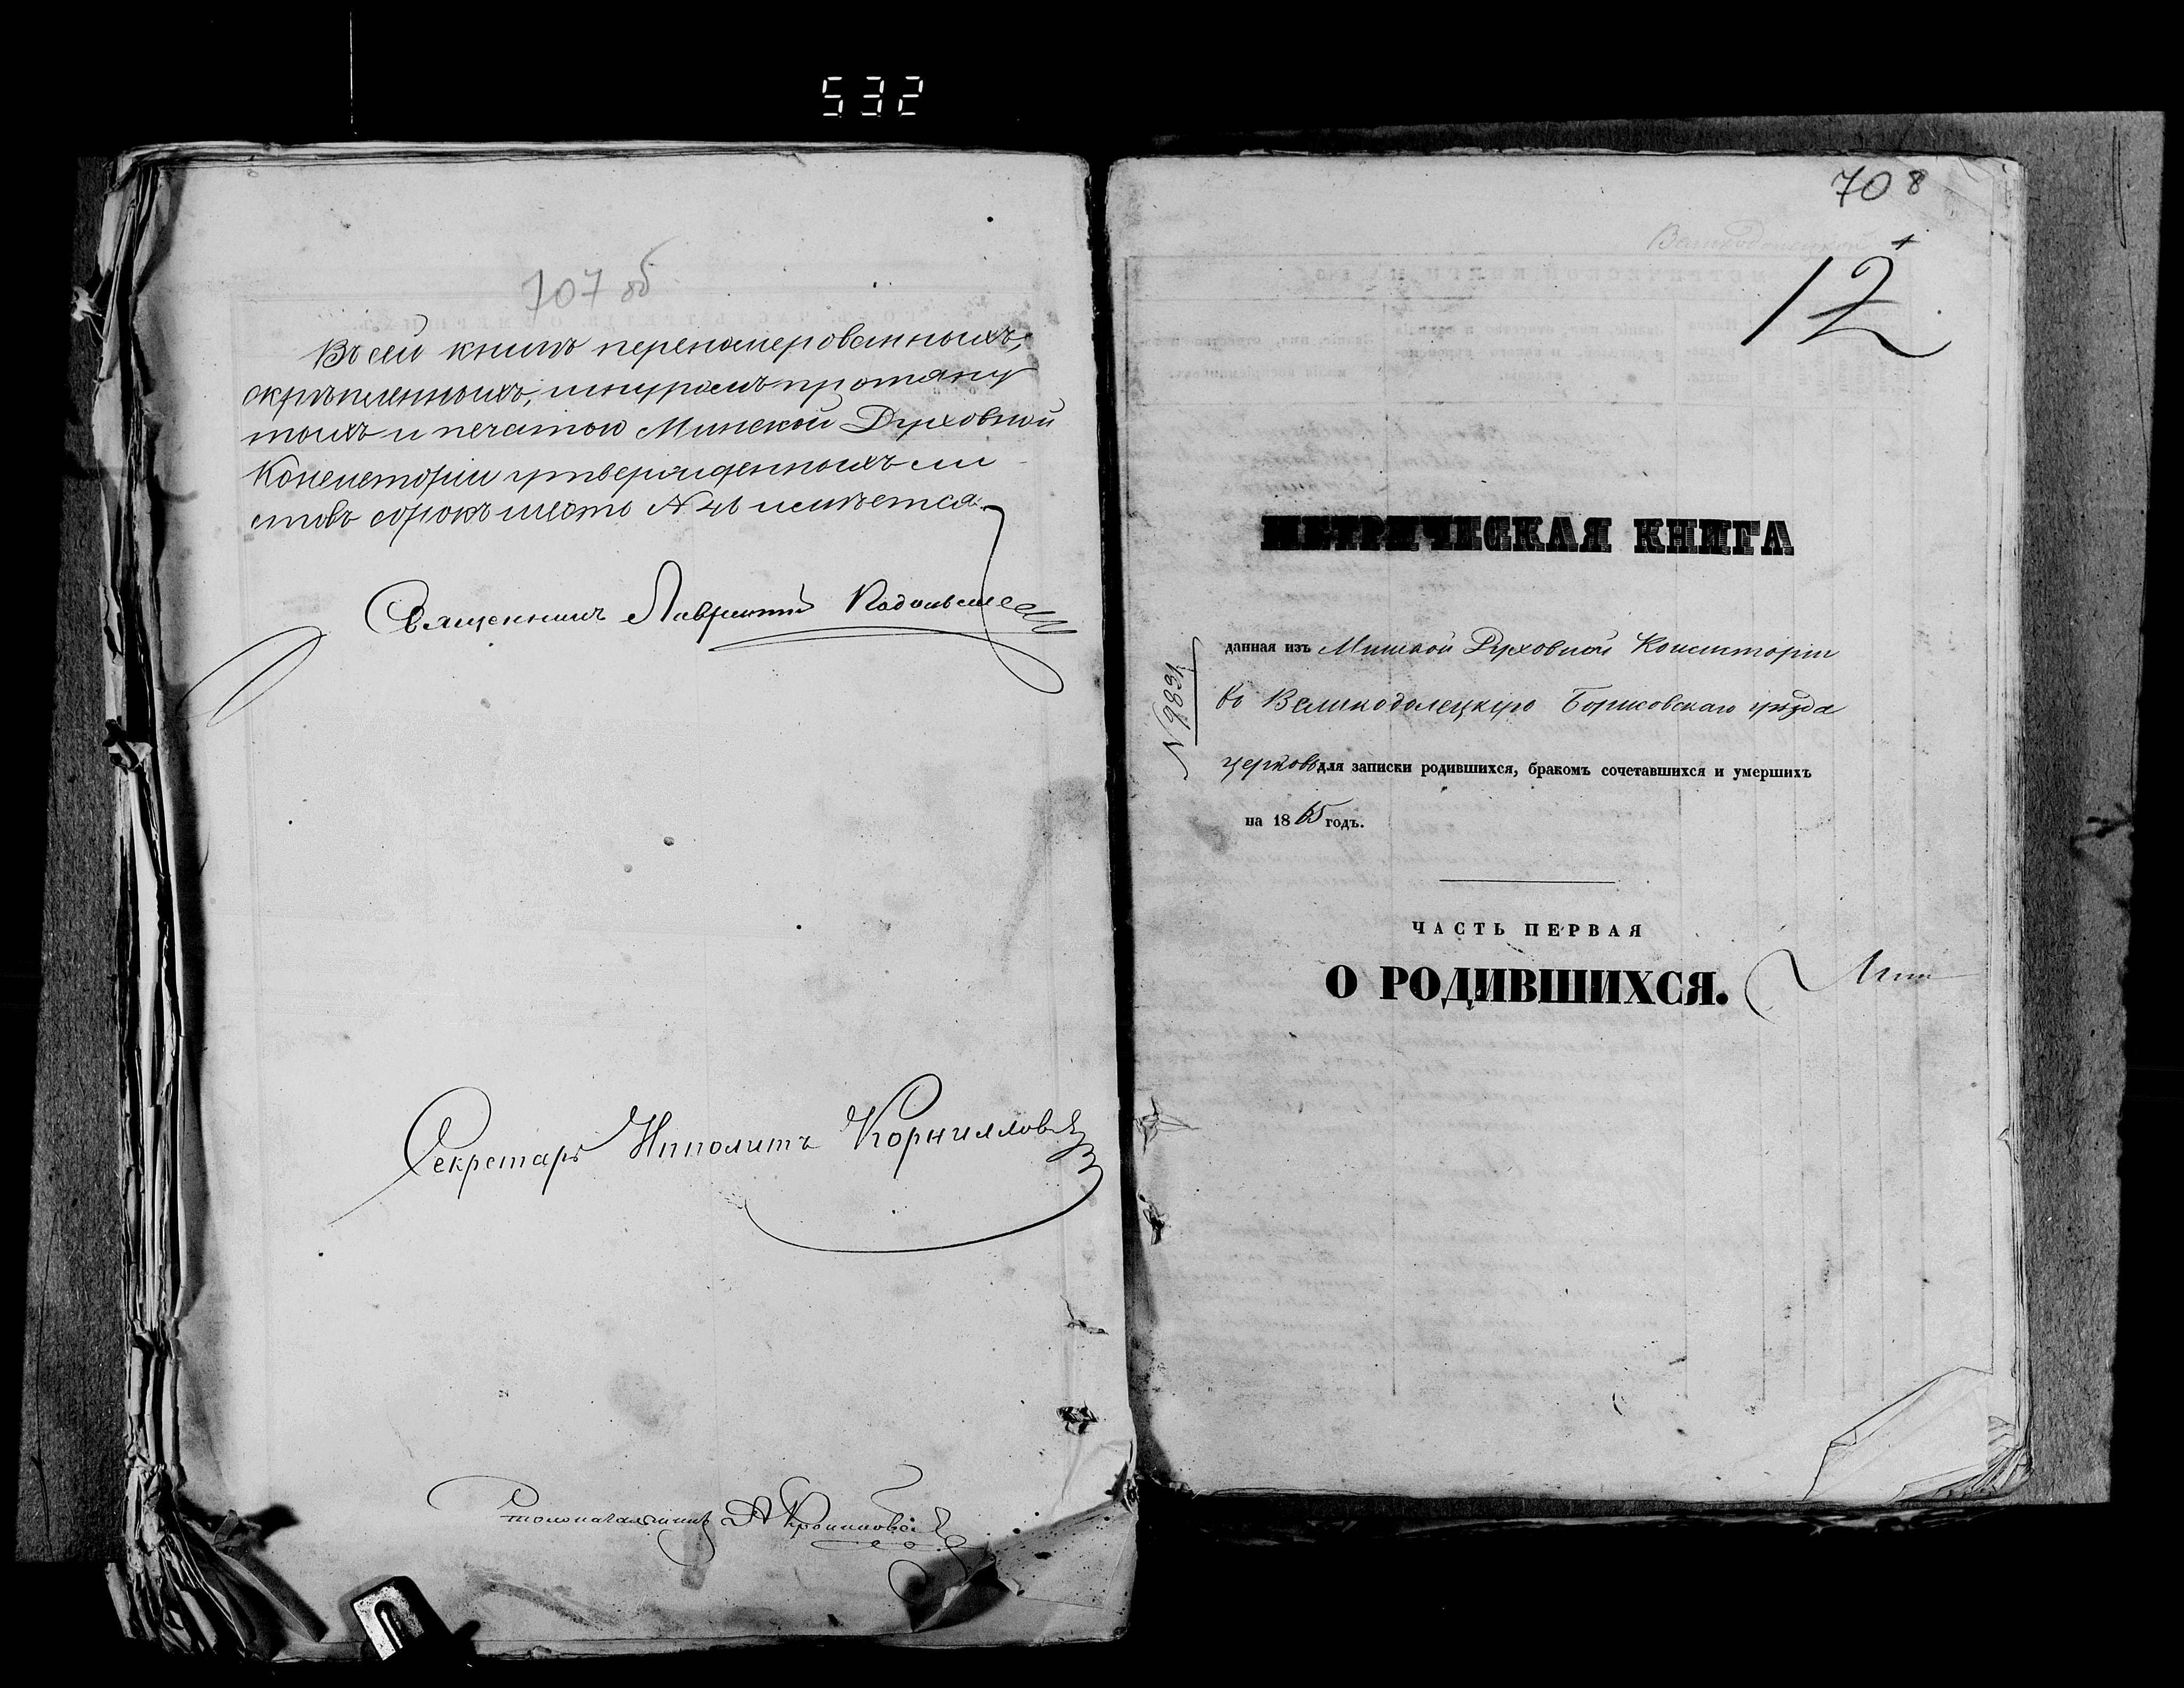 532
707 об
Въ сей книгѣ перенумерованныхъ,
скрѣпленныхъ, шнуромъ протяну
тыхъ и печатью Минской Духовной
Консисторіи утвержденныхъ ли
стовъ сорокъ шесть N 46 имѣется.
Священникъ Лаврентій
Секретарь Ипполитъ Корниллов
Столоначальникъ
708
Великодолецкой
12
МЕТРИЧЕСКАЯ КНИГА
N 9831
данная изъ Минской Духовной Консисторіи
въ Великодолецкую Борисовскаго уѣзда
церковь для записки родившихся, бракомъ сочетавшихся и умершихъ
на 1865 годъ.
ЧАСТЬ ПЕРВАЯ
О РОДИВШИХСЯ.